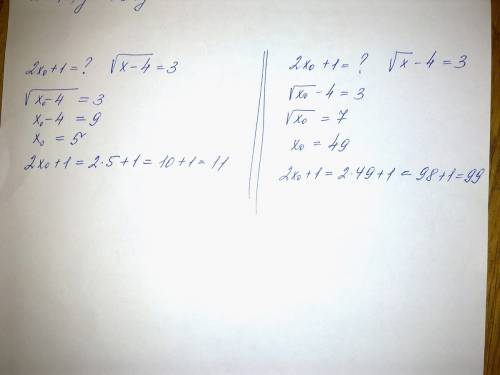 2x₀+1=? √(x-4)=3
√(x₀-4)=3
x₀-4=9
x₀=5
2x₀+1=2·5+1=10+1=11
2x₀+1=? √x-4=3
√x₀-4=3
√x₀=7
x₀=49
2x₀+1=2·49+1=98+1=99